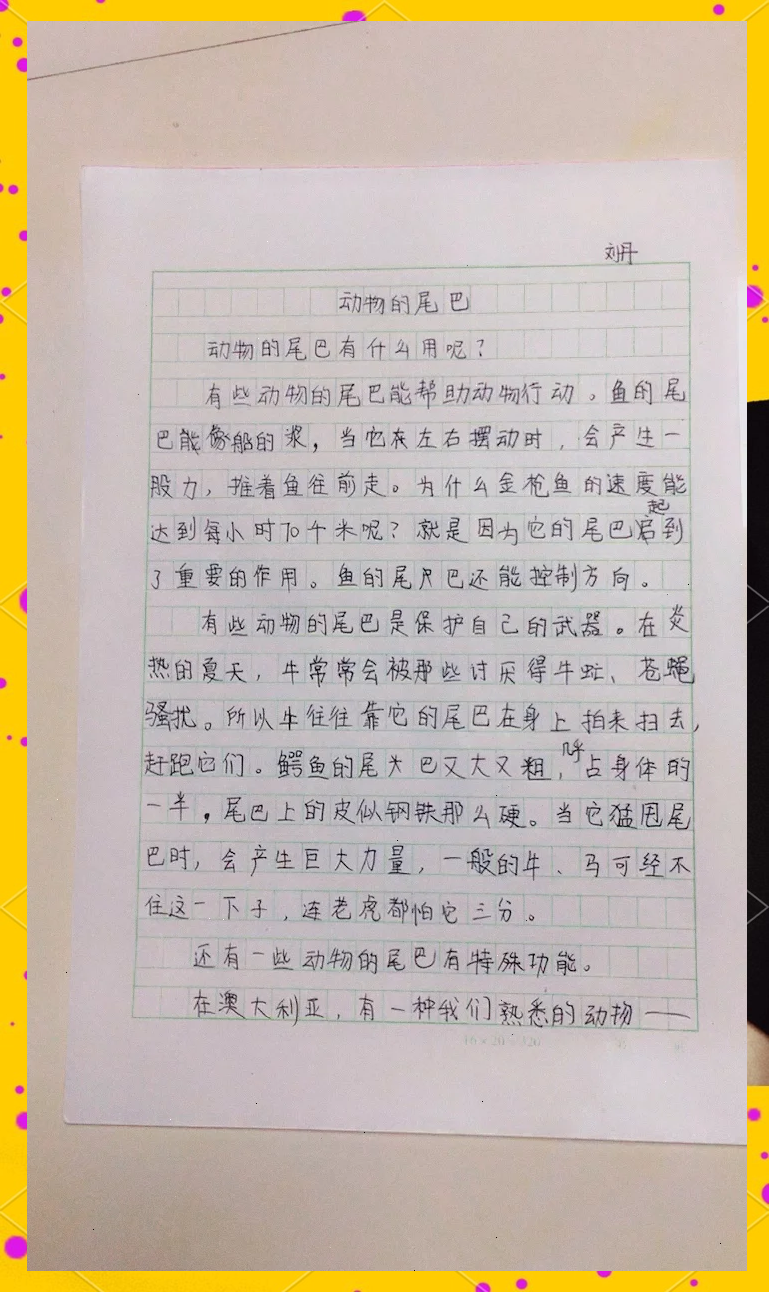 刘丹
动物的尾巴
动物的尾巴有什么用呢？
有些动物的尾巴能帮助动物行动。鱼的尾
巴能像船的浆，当它在左右摆动时，会产生一
股力，推着鱼往前走。为什么金枪鱼的速度能
达到每小时70千米呢？就是因为它的尾巴起到
了重要的作用。鱼的尾巴还能控制方向。
有些动物的尾巴是保护自己的武器。在炎
热的夏天，牛常常会被那些讨厌得牛虻、苍蝇
骚扰。所以牛往往靠它的尾巴在身上拍来扫去，
赶跑它们。鳄鱼的尾巴又大又粗，几乎占身体的
一半，尾巴上的皮似钢铁那么硬。当它猛甩尾
巴时，会产生巨大力量，一般的牛、马可经不
住这一下子，连老虎都怕它三分。
还有一些动物的尾巴有特殊功能。
在澳大利亚，有一种我们熟悉的动物——
16×20=320